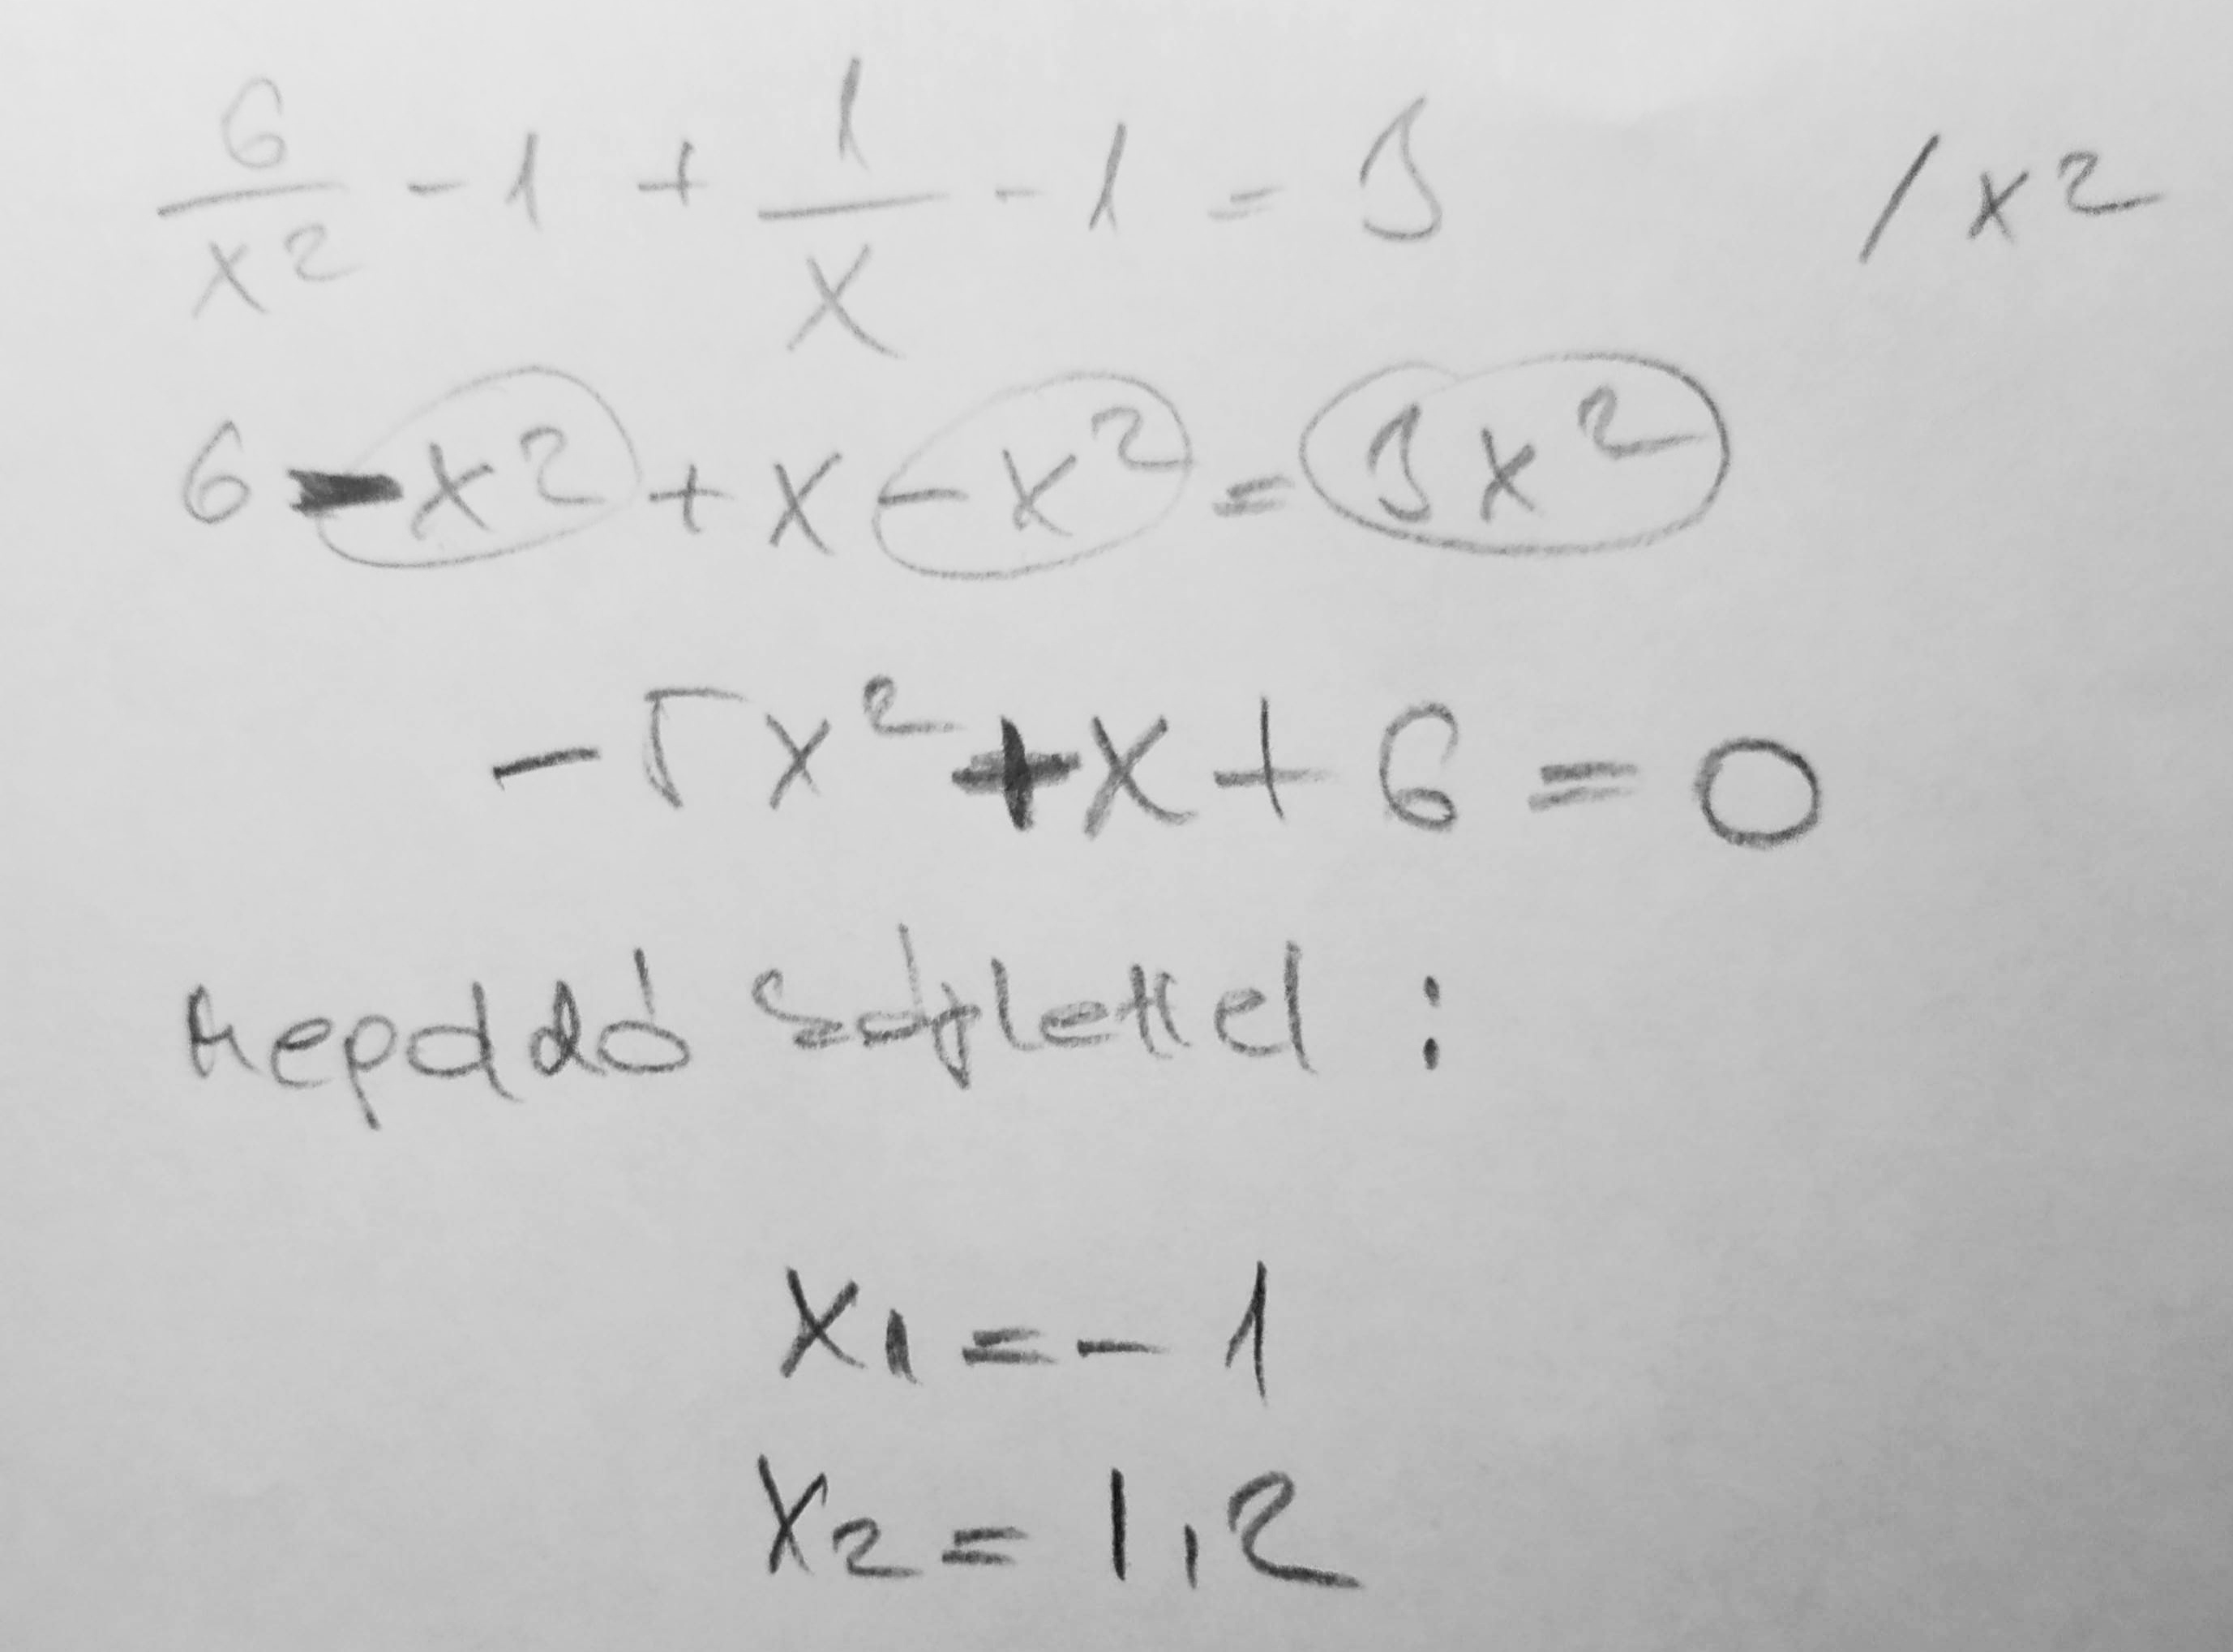 6/x² - 1 + 1/x - 1 = 3 /x²
6 - x² + x - x² = 3x²
-5x² + x + 6 = 0
Megoldó képlettel :
x₁ = -1
x₂ = 1,2